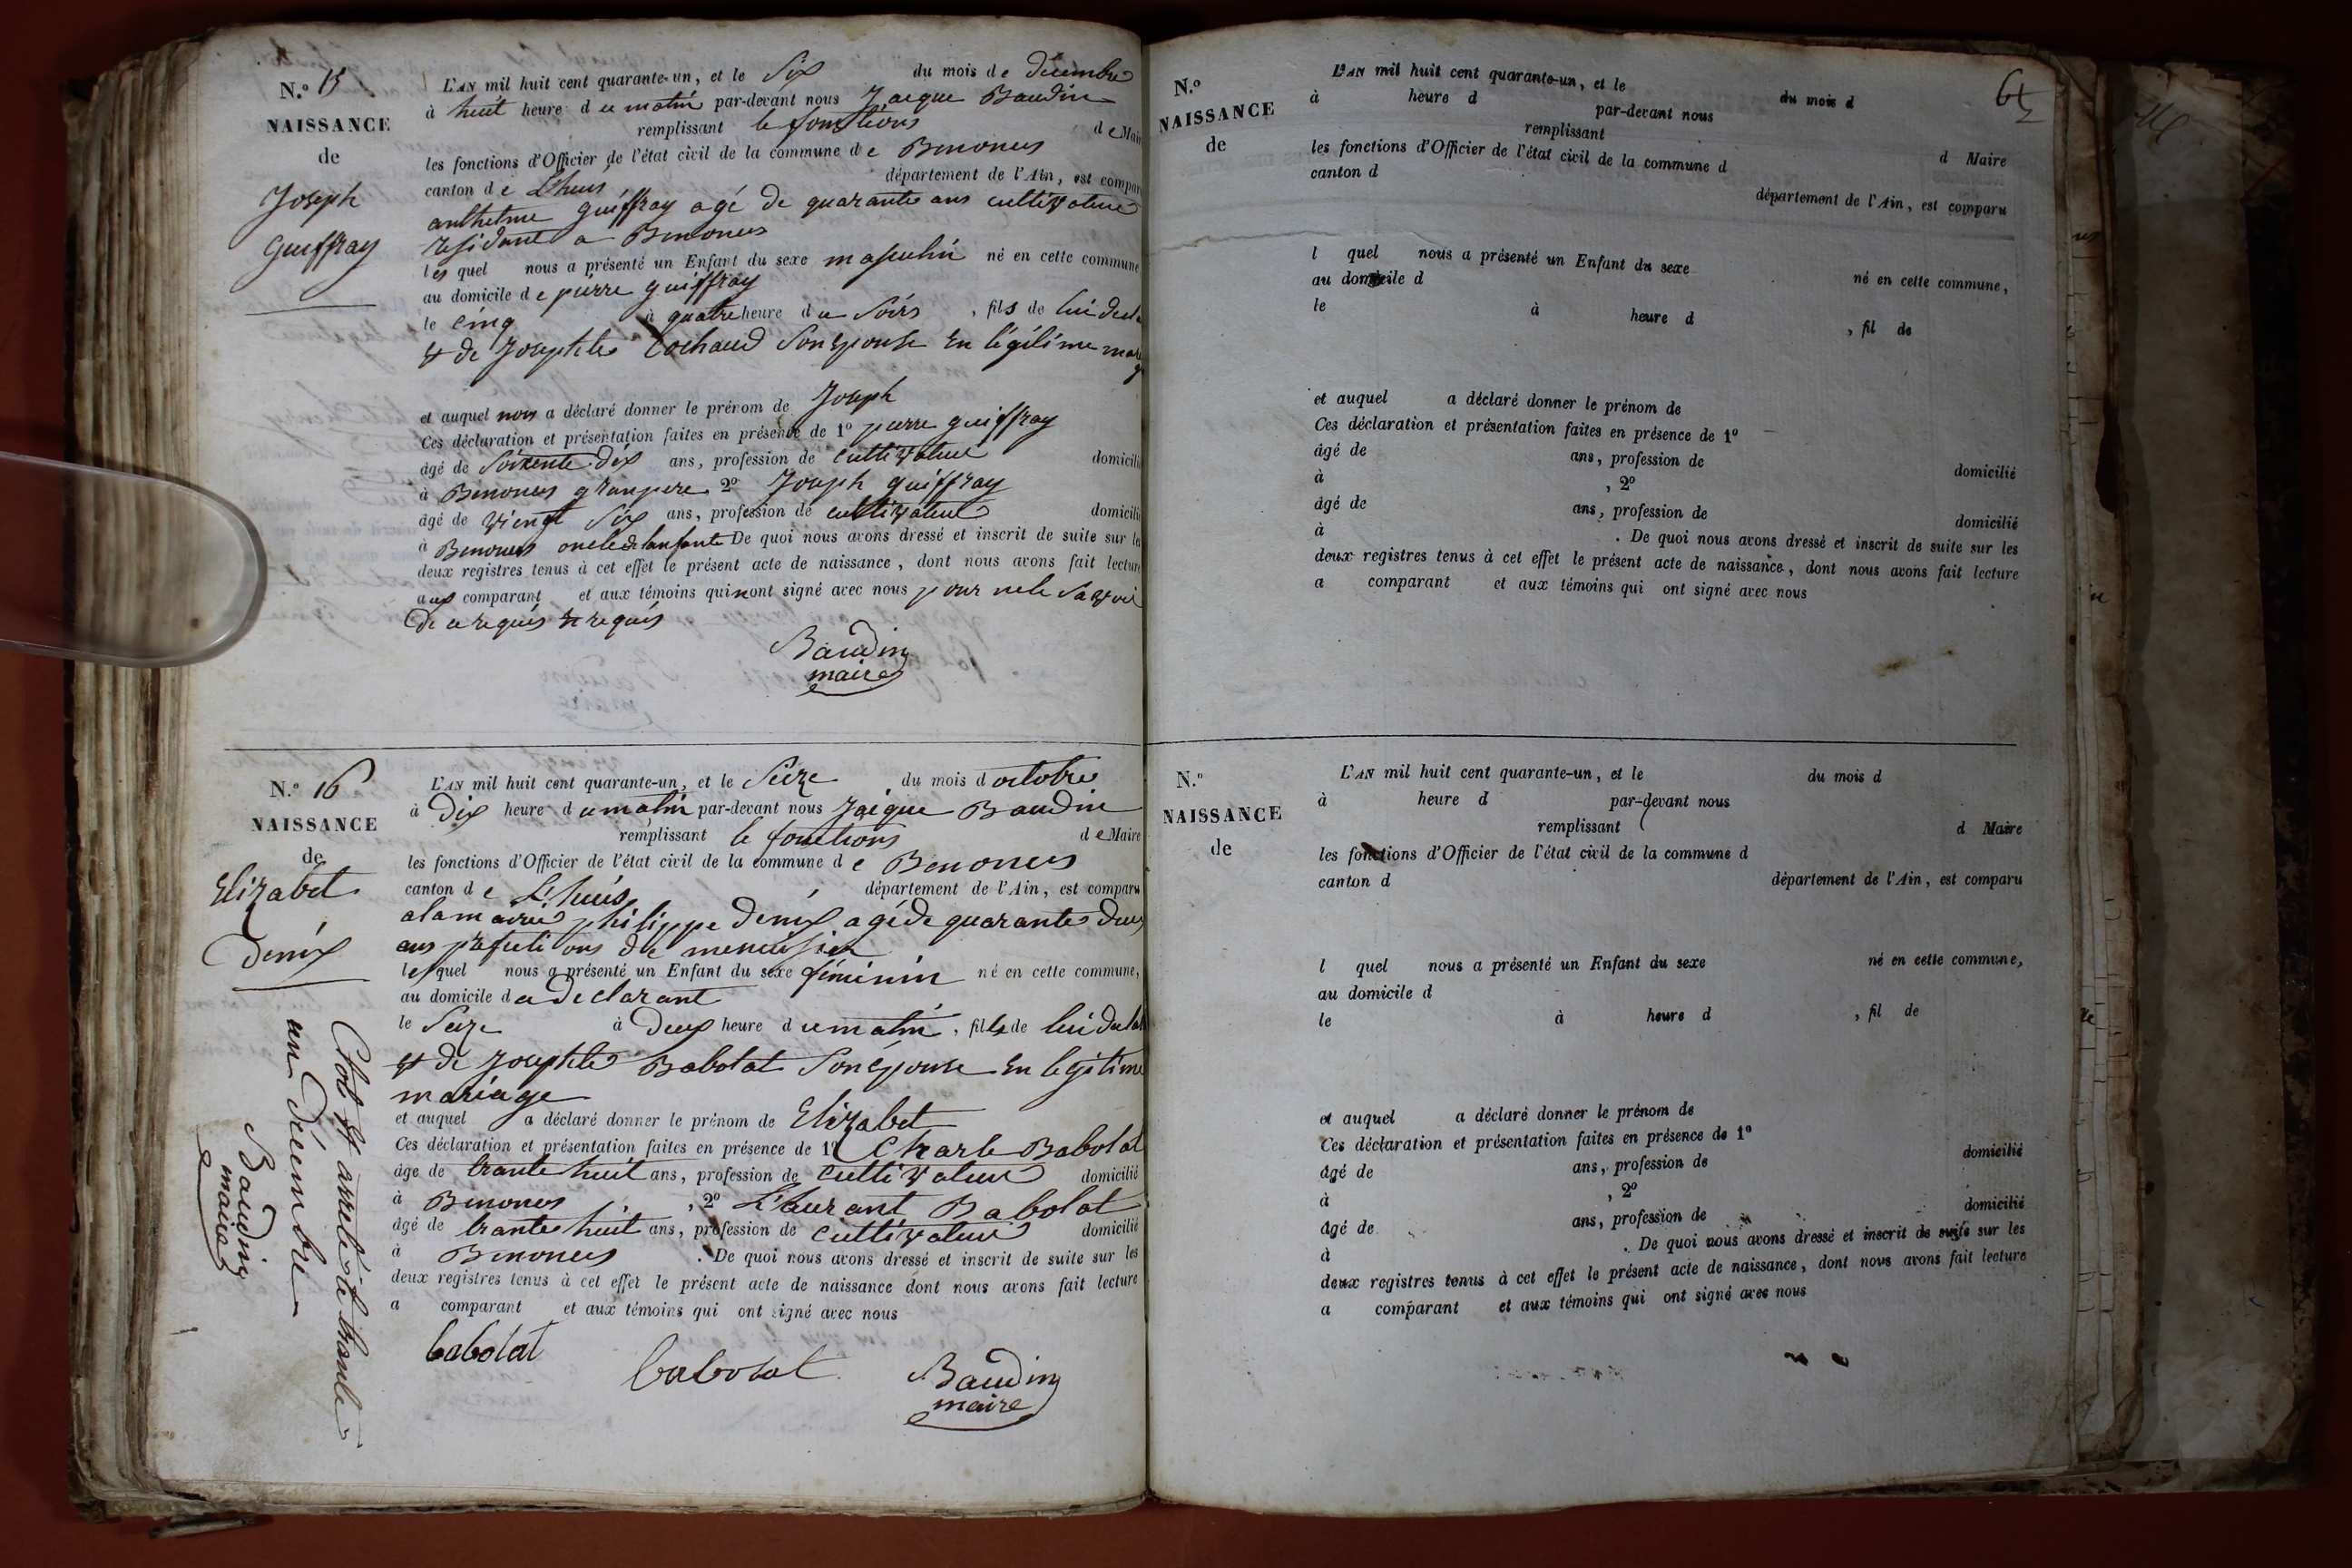 N.o 15
NAISSANCE
de
Joseph
Guiffray
L'AN mil huit cent quarante-un, et le Six du mois de décembre
à huit heure du matin par-devant nous Jacque Baudin
remplissant le fonctions de Mair
les fonctions d'Officier de l'état civil de la commune de Benonces
canton de L'huis département de l'Ain, est compar
anthelme guiffray agé de quarante ans cultivateur
residant a Benonces
lesquel nous a présenté un Enfant du sexe masculin né en cette commune
au domicile de pierre guiffray
le cinq à quatre heure du Soirs, fils de lui decl
et de Josephte Cochaud Son Epouse En légitime mar
et auquel nous a déclaré donner le prénom de Joseph
Ces déclaration et présentation faites en présence de 1o pierre guiffray
âgé de Soixente dix ans, profession de cultivateur domicilié
à Benonces granpere 2o Joseph guiffray
âgé de viengt Six ans, profession de cultivateur domicilié
à Benonces oncle de lanfante De quoi nous avons dressé et inscrit de suite sur le
deux registres tenus à cet effet le présent acte de naissance, dont nous avons fait lecture
aux comparant et aux témoins qui nont signé avec nous pour nele Savoir
de ce requis
Baudin
maire
N.o 16
NAISSANCE
de
Elizabet
Denix
L'AN mil huit cent quarante-un, et le Seize du mois d octobre
à Dix heure du matin par-devant nous Jacque Baudin
remplissant le fonctions de Maire
les fonctions d'Officier de l'état civil de la commune de Benonces
canton de L'huis département de l'Ain, est comparu
alamairie philippe Denix agé de quarante deux
ans profeti ons de menuisier
lesquel nous a présenté un Enfant du sexe féminin né en cette commune,
au domicile du declarant
le Seize à Deux heure du matin, fille de lui
et de Josephte Babolat Son Epouse En legitime
mariage
et auquel a déclaré donner le prénom de Elizabet
Ces déclaration et présentation faites en présence de 1o Charle Babolat
âge de trante huit ans, profession de cultivateur domicilié
à Benonces, 2o L'aurant Babolat
âgé de trante huit ans, profession de cultivateur domicilié
à Benonces. De quoi nous avons dressé et inscrit de suite sur les
deux registres tenus à cet effet le présent acte de naissance dont nous avons fait lecture
a comparant et aux témoins qui ont signé avec nous
babolat
babolat
Baudin
maire
Clot et arreté le trante
un Décembre
Baudin
maire
N.o
NAISSANCE
de
L'AN mil huit cent quarante-un, et le du mois d
à heure d par-devant nous
remplissant d Maire
les fonctions d'Officier de l'état civil de la commune d
canton d département de l'Ain, est comparu
l quel nous a présenté un Enfant du sexe né en cette commune,
au domicile d
le à heure d, fil de
et auquel a déclaré donner le prénom de
Ces déclaration et présentation faites en présence de 1o
âgé de ans, profession de domicilié
à, 2o
âgé de ans, profession de domicilié
à. De quoi nous avons dressé et inscrit de suite sur les
deux registres tenus à cet effet le présent acte de naissance, dont nous avons fait lecture
a comparant et aux témoins qui ont signé avec nous
N.o
NAISSANCE
de
L'AN mil huit cent quarante-un, et le du mois d
à heure d par-devant nous
remplissant d Maire
les fonctions d'Officier de l'état civil de la commune d
canton d département de l'Ain, est comparu
l quel nous a présenté un Enfant du sexe né en cette commune,
au domicile d
le à heure d, fil de
et auquel a déclaré donner le prénom de
Ces déclaration et présentation faites en présence de 1o
âgé de ans, profession de domicilié
à, 2o
âgé de ans, profession de domicilié
à. De quoi nous avons dressé et inscrit de suite sur les
deux registres tenus à cet effet le présent acte de naissance, dont nous avons fait lecture
a comparant et aux témoins qui ont signé avec nous